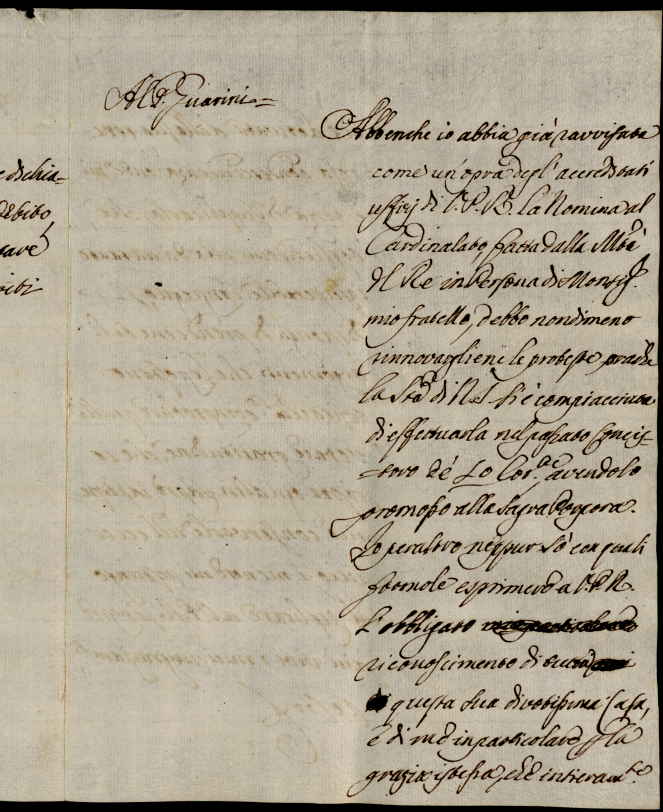 e di chia=
debito,
Al P. Guarini=
Abbenche io abbia già ravvisata
come un'opra degl'accreditati
ufficj di V.P.R. la Nomina al
Cardinalato, fatta dalla M.tà
del Re in Persona di Monsig.r
mio fratello, debbo nondimeno
rinnovargliene le proteste, ora che
la St.à di N.S. si è compiacciuta
di effettuarla nel passato Conci=
=storo de' 10 Cor.te avendolo
promosso alla Sagra Porpora.
Io peraltro neppur sò con quali
formole esprimere a V.P.R.
l'obbligato
riconoscimento di tutta
questa sua divotissima Casa,
e di me in particolare p la
grazia istessa, che interam.te